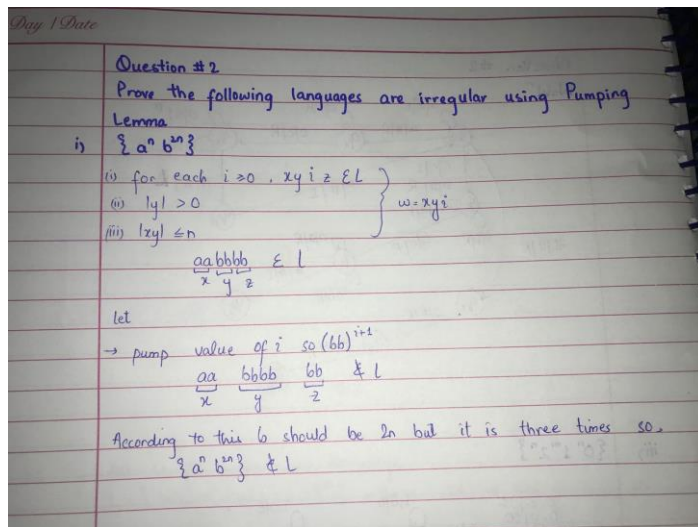 Day / Date
Question #2
Prove the following languages are irregular using Pumping
Lemma
i) { aⁿ b²ⁿ }
(i) for each i ≥0 , xy i z ℇ L
(ii) |y| >0
w = xyi
(iii) |xy| ≤n
aabbbb ℇ L
x y z
let
→ pump value of i so (bb)ⁱ⁺¹
aa bbbb bb ∉ L
x y z
According to this b should be 2n but it is three times so,
{ aⁿ b²ⁿ } ∉ L